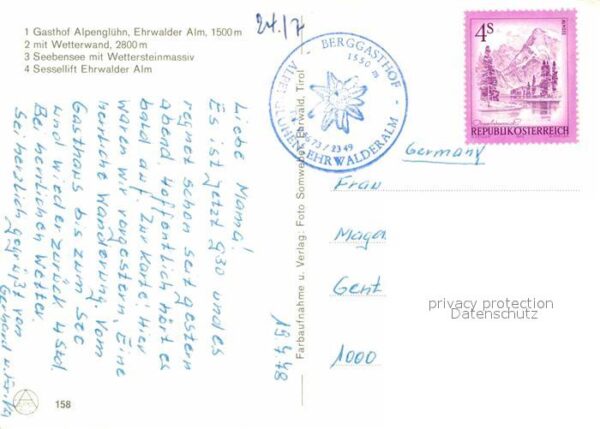 1 Gasthof Alpenglühn, Ehrwalder Alm, 1500 m
2 mit Wetterwand, 2800 m
3 Seebensee mit Wettersteinmassiv
4 Sessellift Ehrwalder Alm
24./7
BERGGASTHOF
1550 m
ALPENGLÜHEN, EHRWALDERALM
73 / 23 49
4 S
REPUBLIK ÖSTERREICH
Germany
Liebe Mama!
Es ist jetzt 9.30 und es
regnet schon seit gestern
abend. Hoffentlich hört es
bald auf. Zur Karte: Hier
waren wir vorgestern, Eine
herrliche Wanderung vom
Gasthaus bis zum See
und wieder zurück 4 Std.
Bei herrlichen Wetter.
Sei herzlich gegrüßt von
Gerhard u.
Farbaufnahme u. Verlag: Foto Somweber, Ehrwald, Tirol
Frau
Maga
Gent
1000
privacy protection
Datenschutz
158